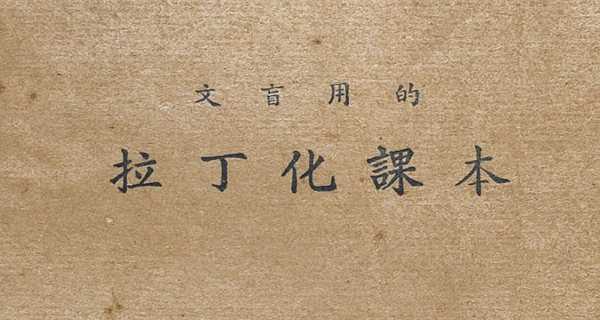 文盲用的
拉丁化課本